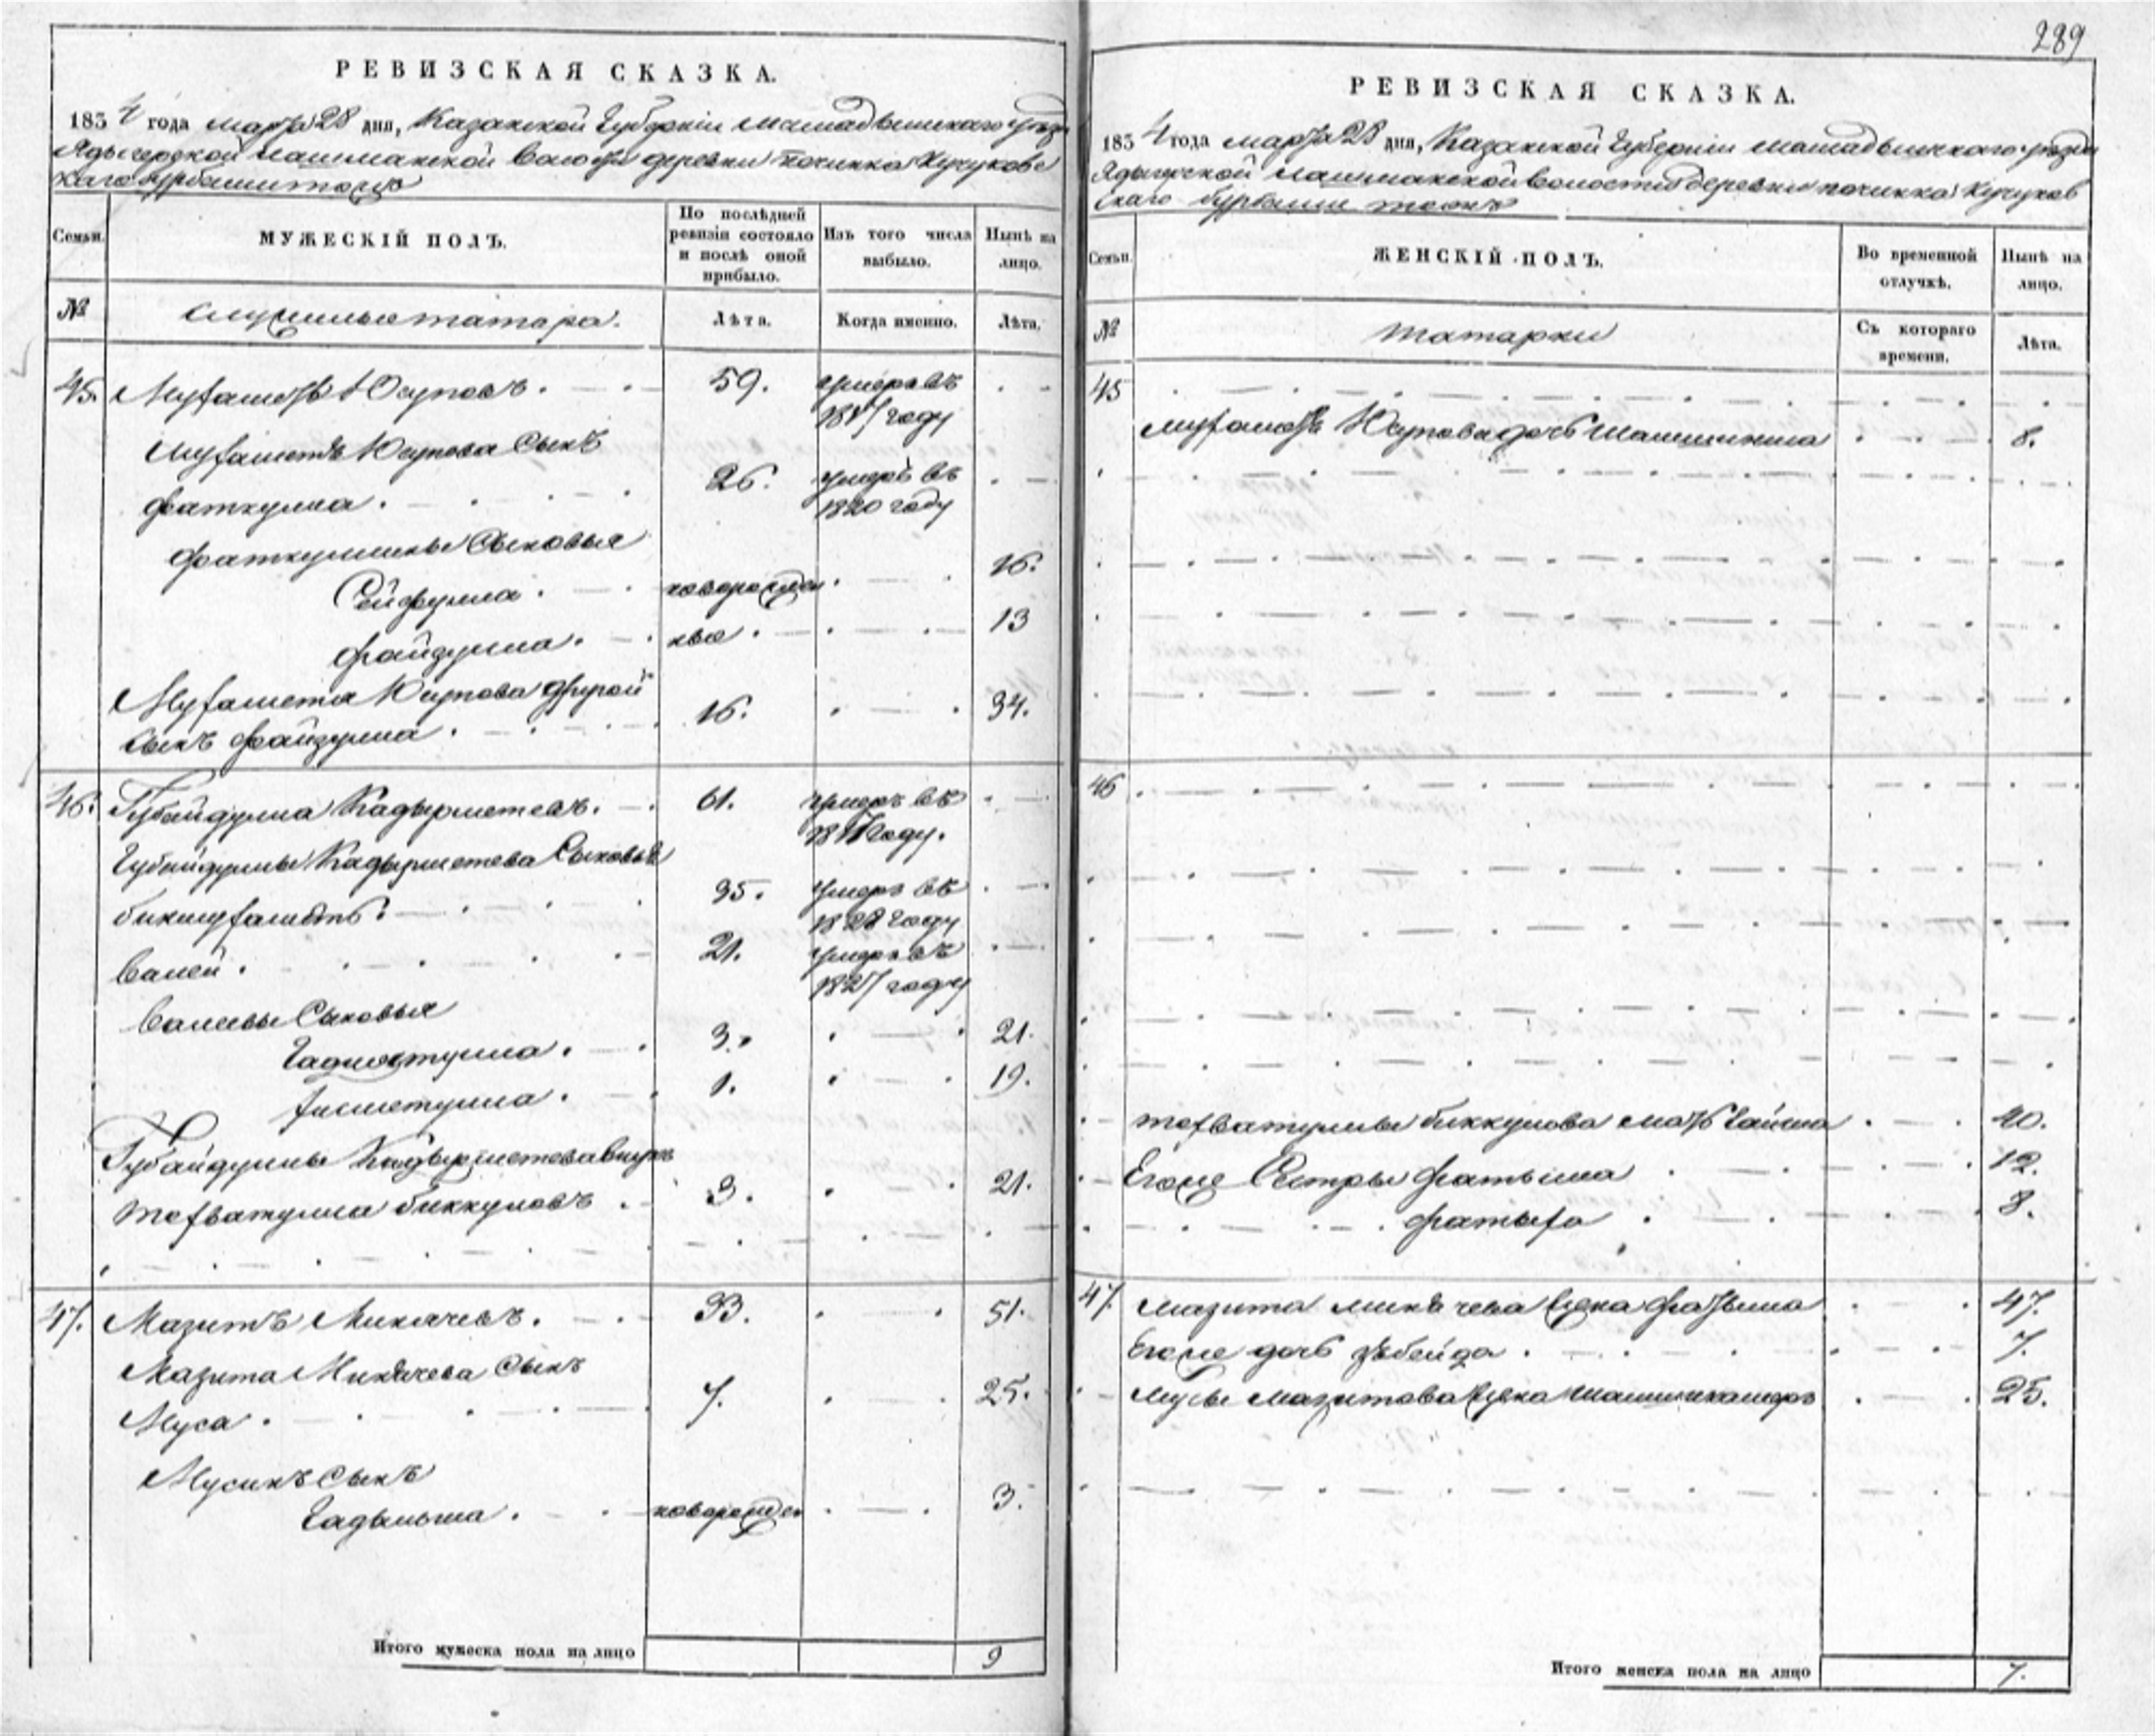 289
РЕВИЗСКАЯ СКАЗКА.
1834 года марта 28 дня, Казанской Губернии мамадышскаго уезда
лашманской волости деревни починка Кучуковс
каго
Семьи.
МУЖЕСКІЙ ПОЛЪ.
По послѣдней ревизіи состояло и послѣ оной прибыло.
Изъ того числа выбыло.
Нынѣ на лицо.
№
служилые татара.
Лѣта.
Когда именно.
Лѣта.
45. Мухаметь Юсуповъ. 59. умеръ въ
18 году
Мухаметь Юсупова Сынъ
фаткулла. 26. умеръ въ
1820 году
фаткуллины Сыновья
Сейфулла. новорожден 16.
файзулла. ные. 13
Мухамета Юсупова другой
сынъ файзулла. 16. 34.
46. Губайдулла Кадырметевъ. 61. умеръ въ
18 году.
Губайдуллы Кадырметева Сыновья
бикмухаметь. 35. умеръ въ
182 году
валей. 21. умеръ въ
1827 году
Валеевы Сыновья
3. 21.
хисметулла. 1. 19.
Губайдуллы Кадырметева внукъ
тохватулла биккуловъ. 3. 21.
47. Мазитъ Микечевъ. 33. 51.
Мазита Микечева Сынъ
Муса. 7. 25.
Мусинъ Сынъ
Гадыльша. новорожден 3.
Итого мужеска пола на лицо 9
РЕВИЗСКАЯ СКАЗКА.
1834 года марта 28 дня, Казанской Губернии мамадышскаго уезда
лашманской волости деревни починка Кучуков
скаго
Семьи.
ЖЕНСКІЙ ПОЛЪ.
Во временной отлучкѣ.
Нынѣ на лицо.
№
татарки
Съ котораго времени.
Лѣта.
45
мухаметь Юсупова дочь 8.
46
тохватуллы биккулова мать 40.
Егоже Сестры фатыма 12.
фатыха 8.
47. мазита микечева жена 47.
Егоже дочь зюбейда. 7.
Мусы мазитова жена 25.
Итого женска пола на лицо 7.